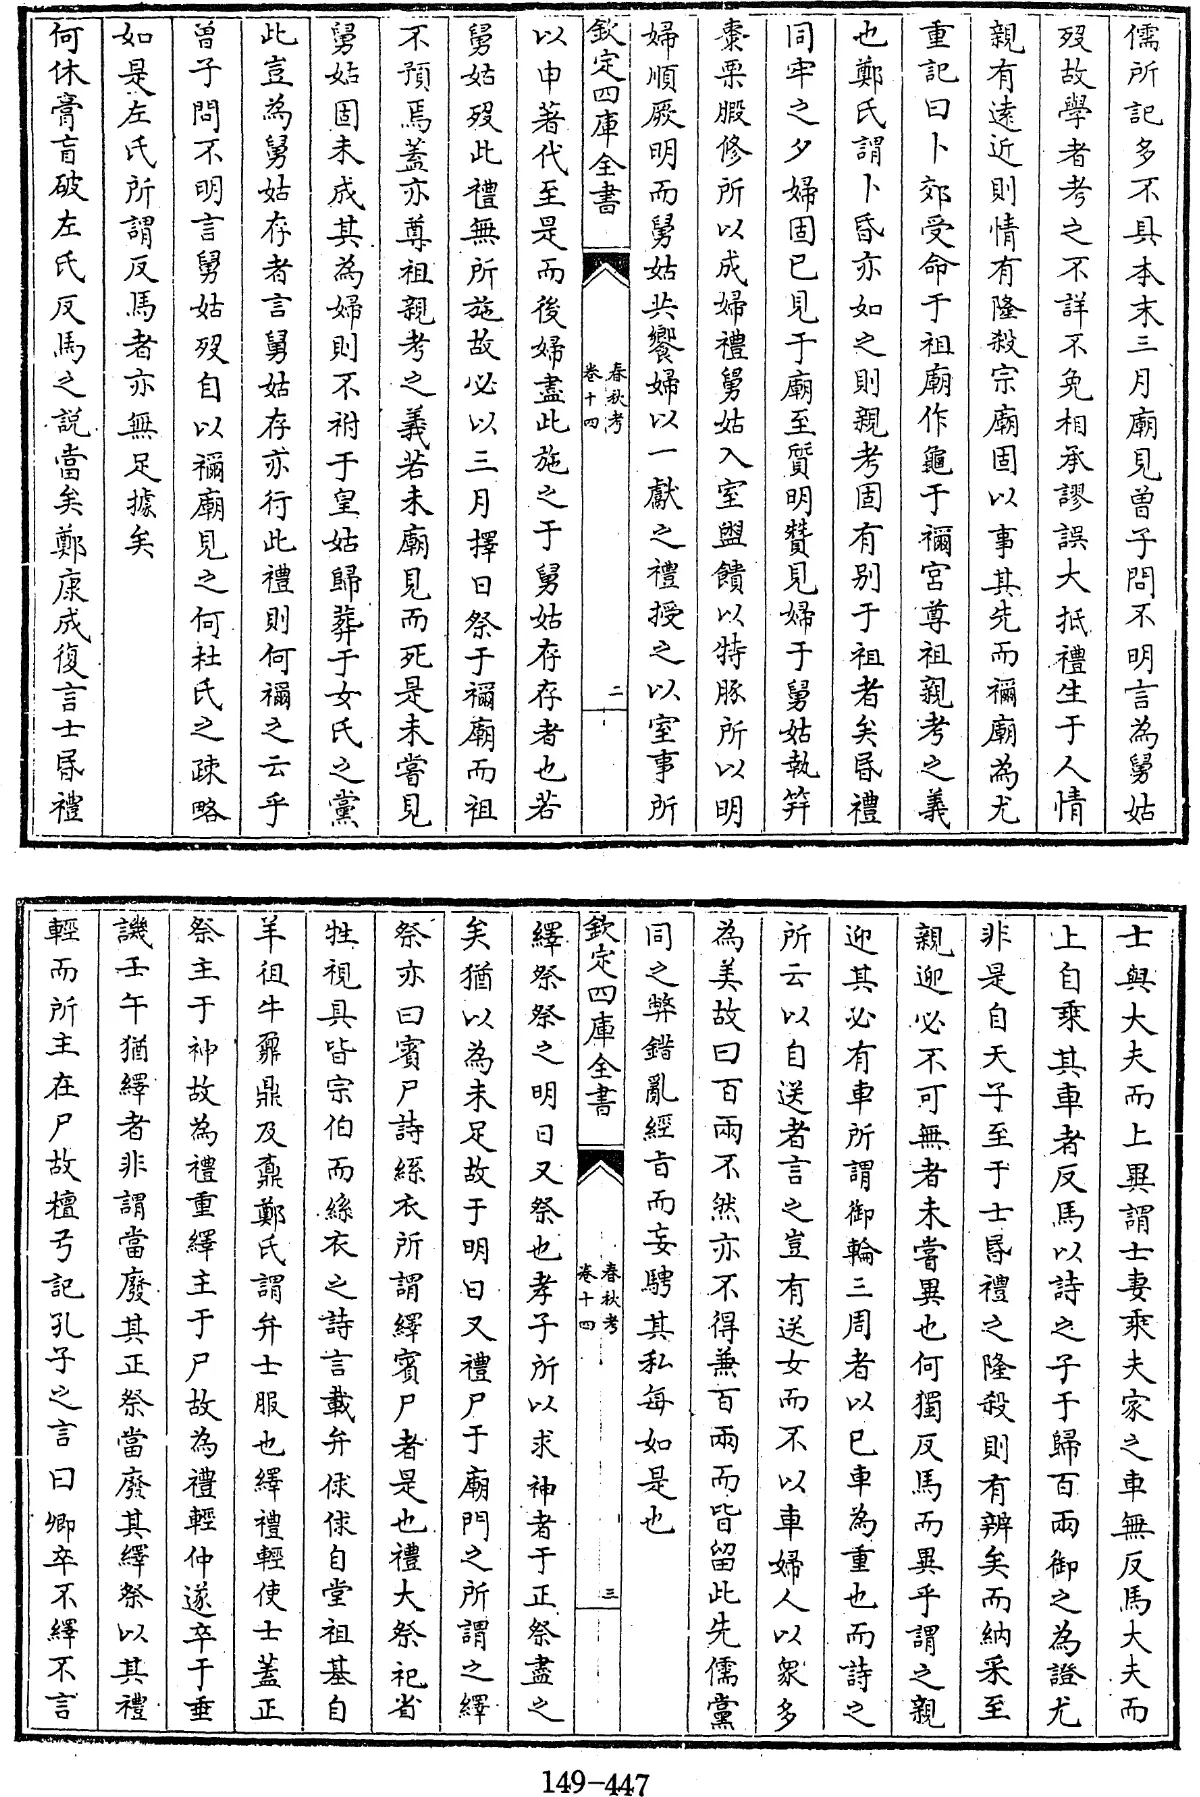 儒所記多不具本末三月廟見曾子問不明言為舅姑
歿故學者考之不詳不免相承謬誤大抵禮生于人情
親有遠近則情有隆殺宗廟固以事其先而禰廟為尤
重記曰卜郊受命于祖廟作龜于禰宮尊祖親考之義
也鄭氏謂卜昏亦如之則親考固有别于祖者矣昏禮
同牢之夕婦固已見于廟至質明贊見婦于舅姑執笲
棗栗腶修所以成婦禮舅姑入室盥饋以特豚所以明
婦順厥明而舅姑共饗婦以一獻之禮授之以室事所
欽定四庫全書
春秋考
卷十四
二
以申著代至是而後婦盡此施之于舅姑存存者也若
舅姑歿此禮無所施故必以三月擇日祭于禰廟而祖
不預焉蓋亦尊祖親考之義若未廟見而死是未嘗見
舅姑固未成其為婦則不祔于皇姑歸葬于女氏之黨
此豈為舅姑存者言舅姑存亦行此禮則何禰之云乎
曾子問不明言舅姑歿自以禰廟見之何杜氏之疎略
如是左氏所謂反馬者亦無足據矣
何休膏肓破左氏反馬之説當矣鄭康成復言士昏禮
士與大夫而上異謂士妻乘夫家之車無反馬大夫而
上自乘其車者反馬以詩之子于歸百兩御之為證尤
非是自天子至于士昏禮之隆殺則有辨矣而納采至
親迎必不可無者未嘗異也何獨反馬而異乎謂之親
迎其必有車所謂御輪三周者以已車為重也而詩之
所云以自送者言之豈有送女而不以車婦人以衆多
為美故曰百兩不然亦不得兼百兩而皆留此先儒黨
同之弊錯亂經旨而妄騁其私每如是也
欽定四庫全書
春秋考
卷十四
三
繹祭祭之明日又祭也孝子所以求神者于正祭盡之
矣猶以為未足故于明日又禮尸于廟門之所謂之繹
祭亦曰賓尸詩絲衣所謂繹賓尸者是也禮大祭祀省
牲視具皆宗伯而絲衣之詩言載弁俅俅自堂徂基自
羊徂牛鼐鼎及鼒鄭氏謂弁士服也繹禮輕使士蓋正
祭主于神故為禮重繹主于尸故為禮輕仲遂卒于垂
譏壬午猶繹者非謂當廢其正祭當廢其繹祭以其禮
輕而所主在尸故檀弓記孔子之言曰卿卒不繹不言
149-447